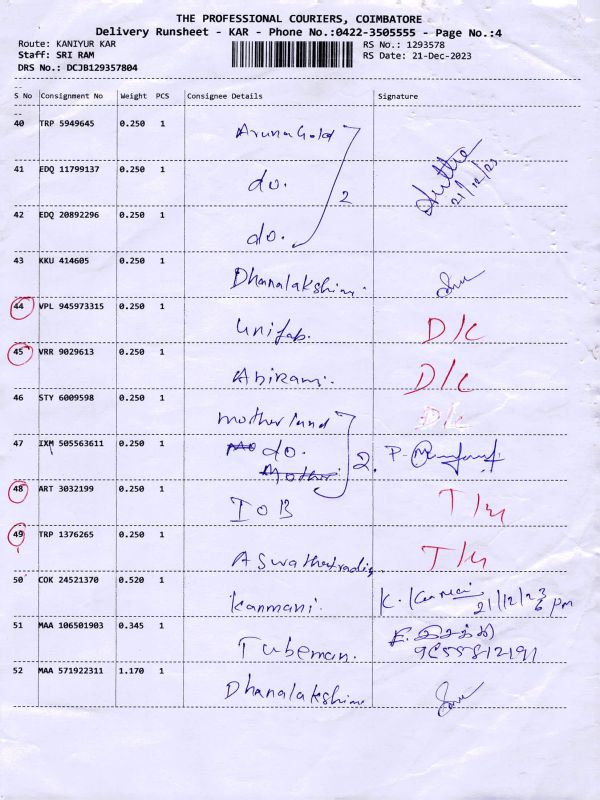 THE PROFESSIONAL COURIERS, COIMBATORE
Delivery Runsheet - KAR - Phone No.:0422-3505555 - Page No.:4
Route: KANIYUR KAR RS No.: 1293578
Staff: SRI RAM RS Date: 21-Dec-2023
DRS No.: DCJB129357804
S No Consignment No Weight PCS Consignee Details Signature
40 TRP 5949645 0.250 1 Aruna Gold
41 EDQ 11799137 0.250 1 do. 2 21/12/23
42 EDQ 20892296 0.250 1 do.
43 KKU 414605 0.250 1 Dhanalakshmi.
44 VPL 945973315 0.250 1 Unifab. D/C
45 VRR 9029613 0.250 1 Abirami. D/C
46 STY 6009598 0.250 1 motherland D/C
47 IXM 505563611 0.250 1 do. 2.
48 ART 3032199 0.250 1 IOB T/M
49 TRP 1376265 0.250 1 Aswathetradig T/M
50 COK 24521370 0.520 1 Kanmani. K. 21/12/23 6 pm
51 MAA 106501903 0.345 1 Tubeman. 9655812191
52 MAA 571922311 1.170 1 Dhanalakshmi